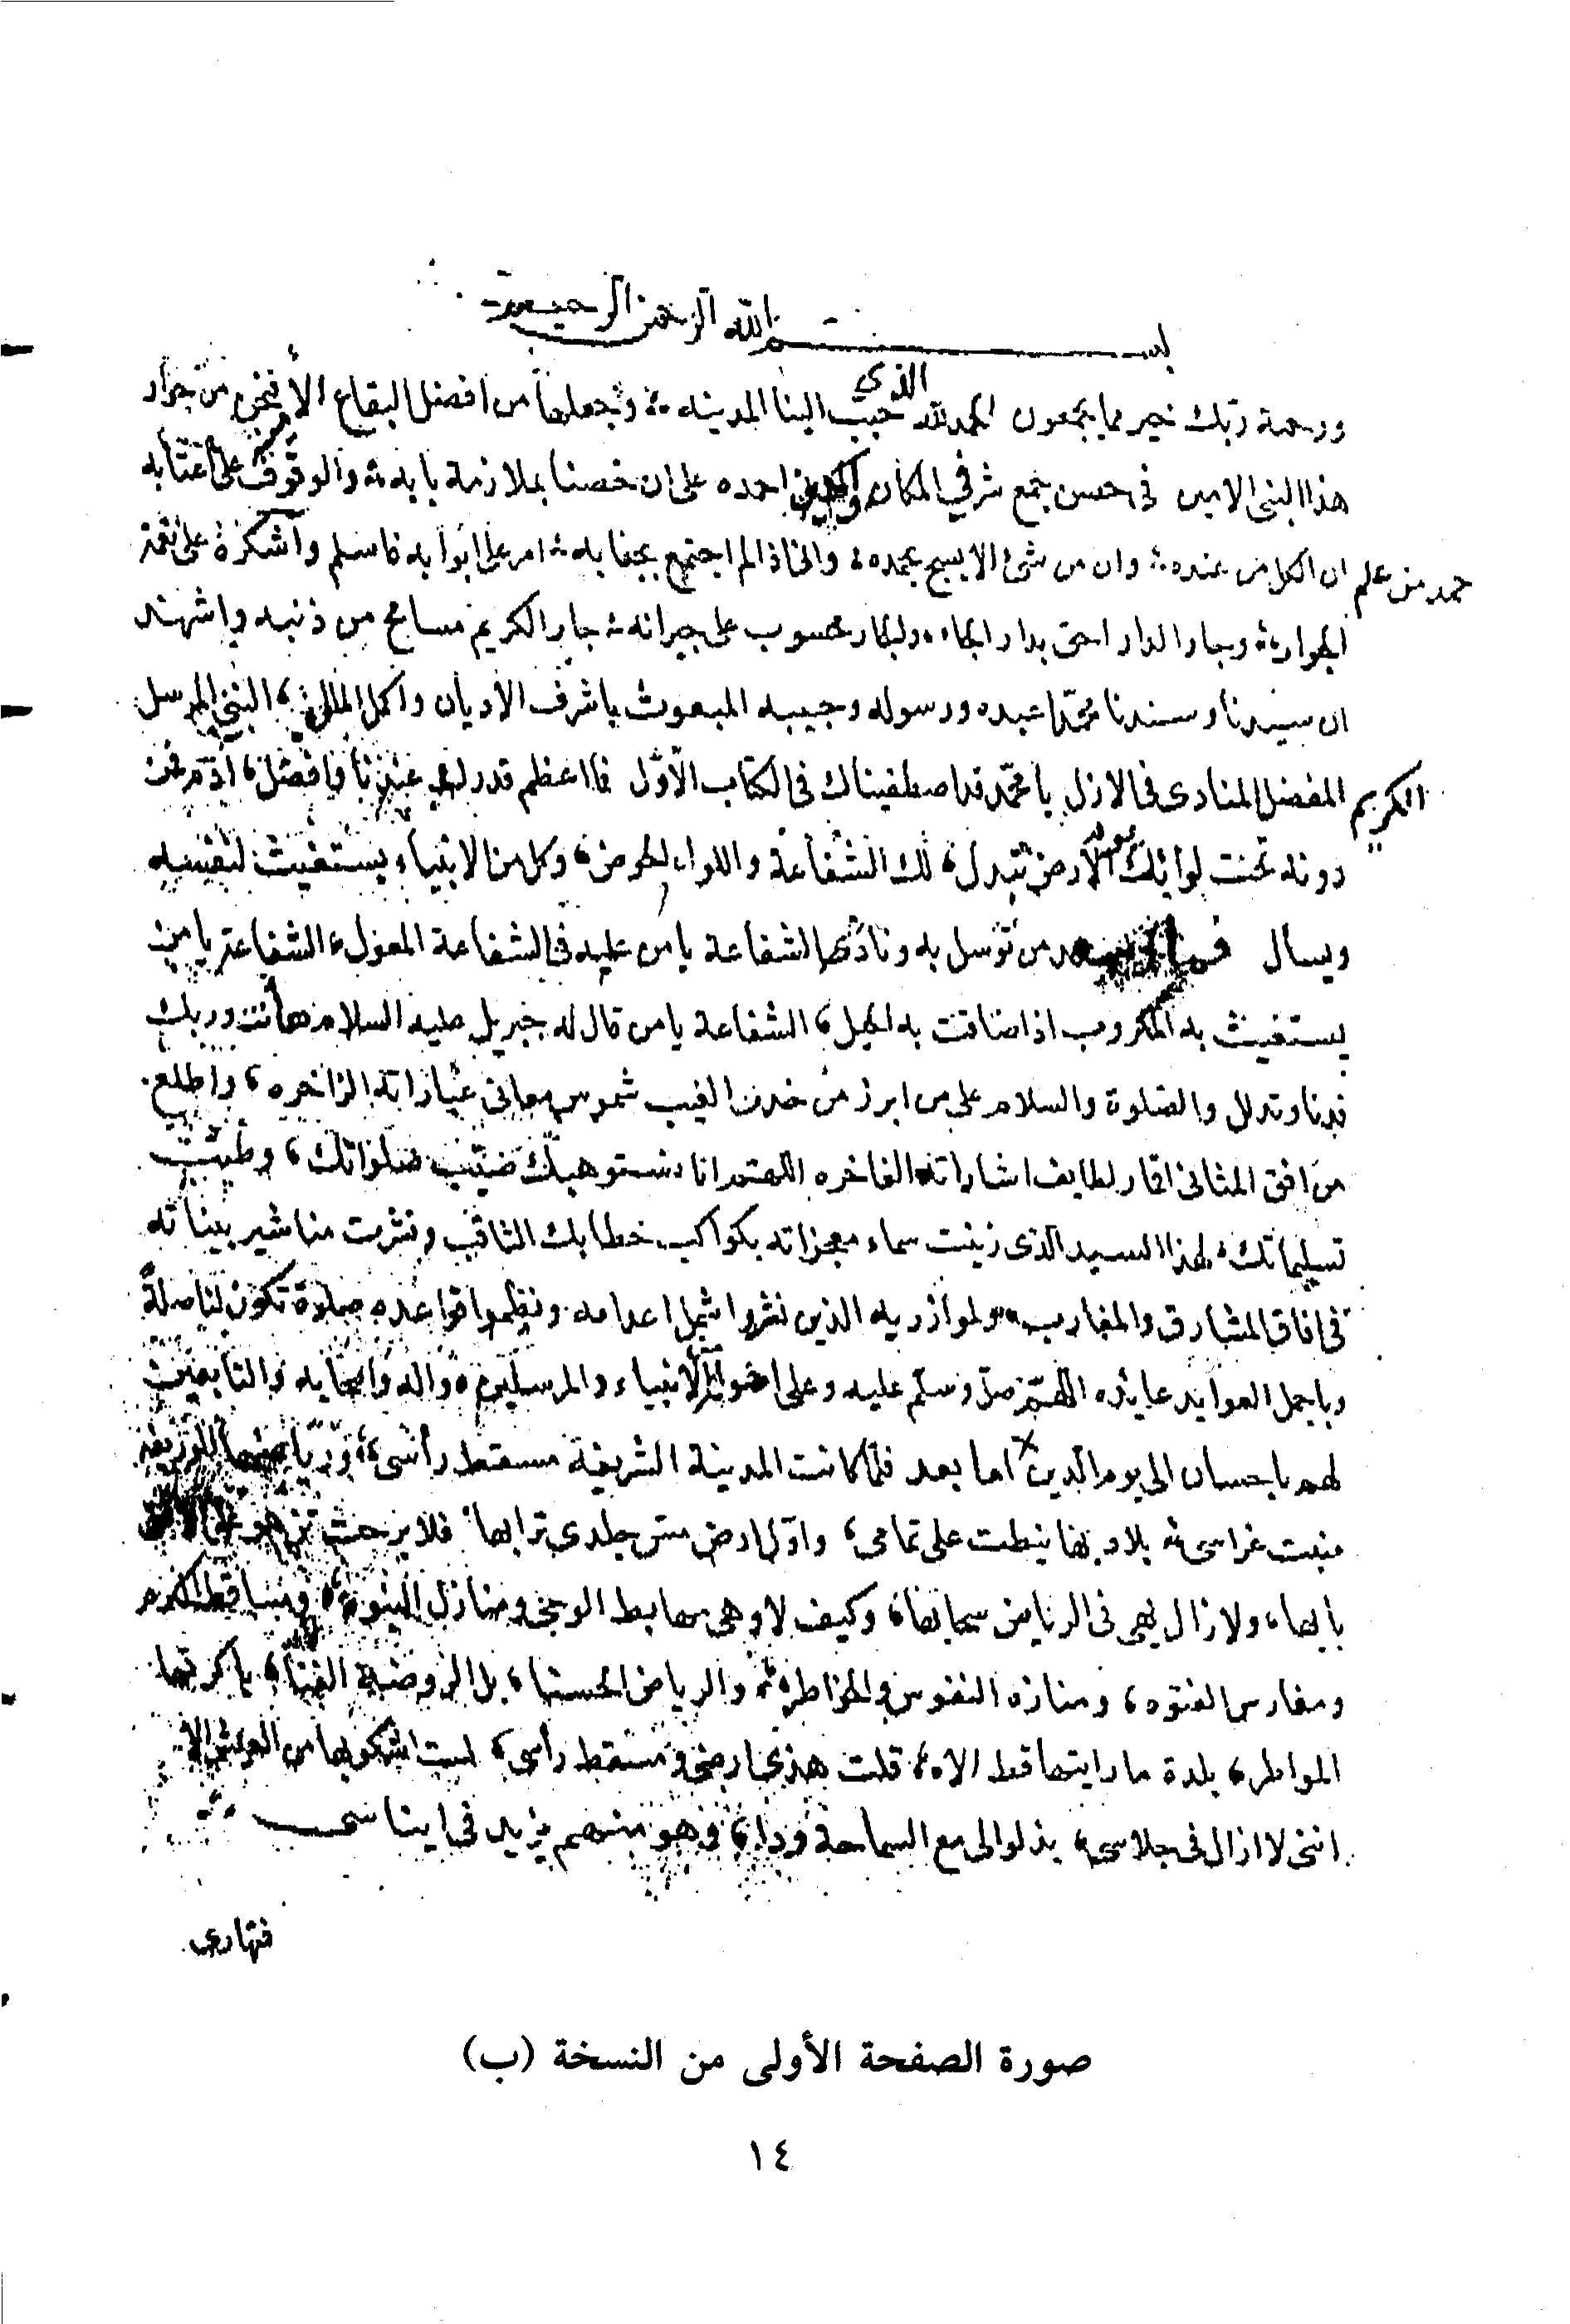 بسم الله الرحمن الرحيم
ورحمة ربك خير مما يجمعون الحمد لله الذي حبب الينا المدينه وجعلها من افضل البقاع من جوار
هذا النبى الامين فى احسن جمع شرفي المكان احمده على ان خصنا بملازمة بابه والوقوف على اعتابه
حمد من علم ان الكل من عنده وان من شئ الا يسبح بحمده وانى اذا لم اجتمع بجنابه امر على ابوابه فاسلم واشكره على نعمة
الجوار وجار الدار احق بدار الجار والجار محسوب على جيرانه جار الكريم مسامح من ذنبه واشهد
ان سيدنا وسندنا محمدا عبده ورسوله وحبيبه المبعوث باشرف الأديان واكمل الملل النبي المرسل
الكريم المفضل المنادى فى الازل يا محمد قد اصطفيناك فى الكتاب الأول فما اعظم قدر عندنا وافضل آدم فمن
دونه تحت لوائك الأرض تبدل لك الشفاعة واللواء والحوض وكل من الانبياء يستغيث لنفسه
ويسال من توسل به وناداه الشفاعة يا من عليه فى الشفاعة المعول الشفاعة يا من
يستغيث به المكروب اذا ضاقت به الحيل الشفاعة يا من قال له جبريل عليه السلام ها أنت وربك
فدنا وتدلل والصلوة والسلام على من ابرز من خدر الغيب شموس معانى عباراته الزاخره واطلع
من افق المثانى اقمار لطايف اشاراته الفاخره اللهم انا نستوهبك صيب صلواتك وطيب
تسليماتك لهذا السيد الذى زينت سماء معجزاته بكواكب خطابك الثاقب ونشرت مناشير بيناته
فى افاق المشارق والمغارب ولموازريه الذين نثروا شمل اعدامه ونظموا قواعده صلاة تكون لنا صلةً
وباجمل العوايد عايده اللهم صل وسلم عليه وعلى اخوانه الأنبياء والمرسلين واله واصحابه والتابعين
لهم باحسان الى يوم الدين اما بعد فلما كانت المدينة الشريفة مسقط رأسى
منبت غراسى بلاد بها نيطت على تمامى واول ارض مس جلدى ترابها فلا برحت تزهو
ولا زال يهمى فى الرياض سحابها وكيف لا وهى مهابط الوحى ومنازل النبوه ومساقط الكرم
ومغارس الفتوه ومنازه النفوس والخواطر والرياض الحسنا بل الروضة الغنا باكرتها
المواطر بلدة ما رايتها قط الا قلت هذى ارضى ومسقط رأسى لست اشكو بها من العيش الا
اننى لا ازال فى جلاسى بذلوا لى مع السماحة ودا فهو منهم يزيد فى ايناسى
فنهارى
صورة الصفحة الأولى من النسخة (ب)
١٤